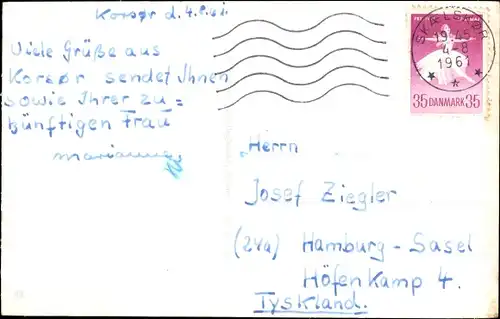 Korsør d. 4.8.61.
Viele Grüße aus
Korsør sendet Ihnen
sowie Ihrer zu=
künftigen Frau
Marianne
SKÆLSKØR
19.45
4-8
1961
35 DANMARK 35
Herrn
Josef Ziegler
(24a) Hamburg-Sasel
Höfenkamp 4.
Tyskland.